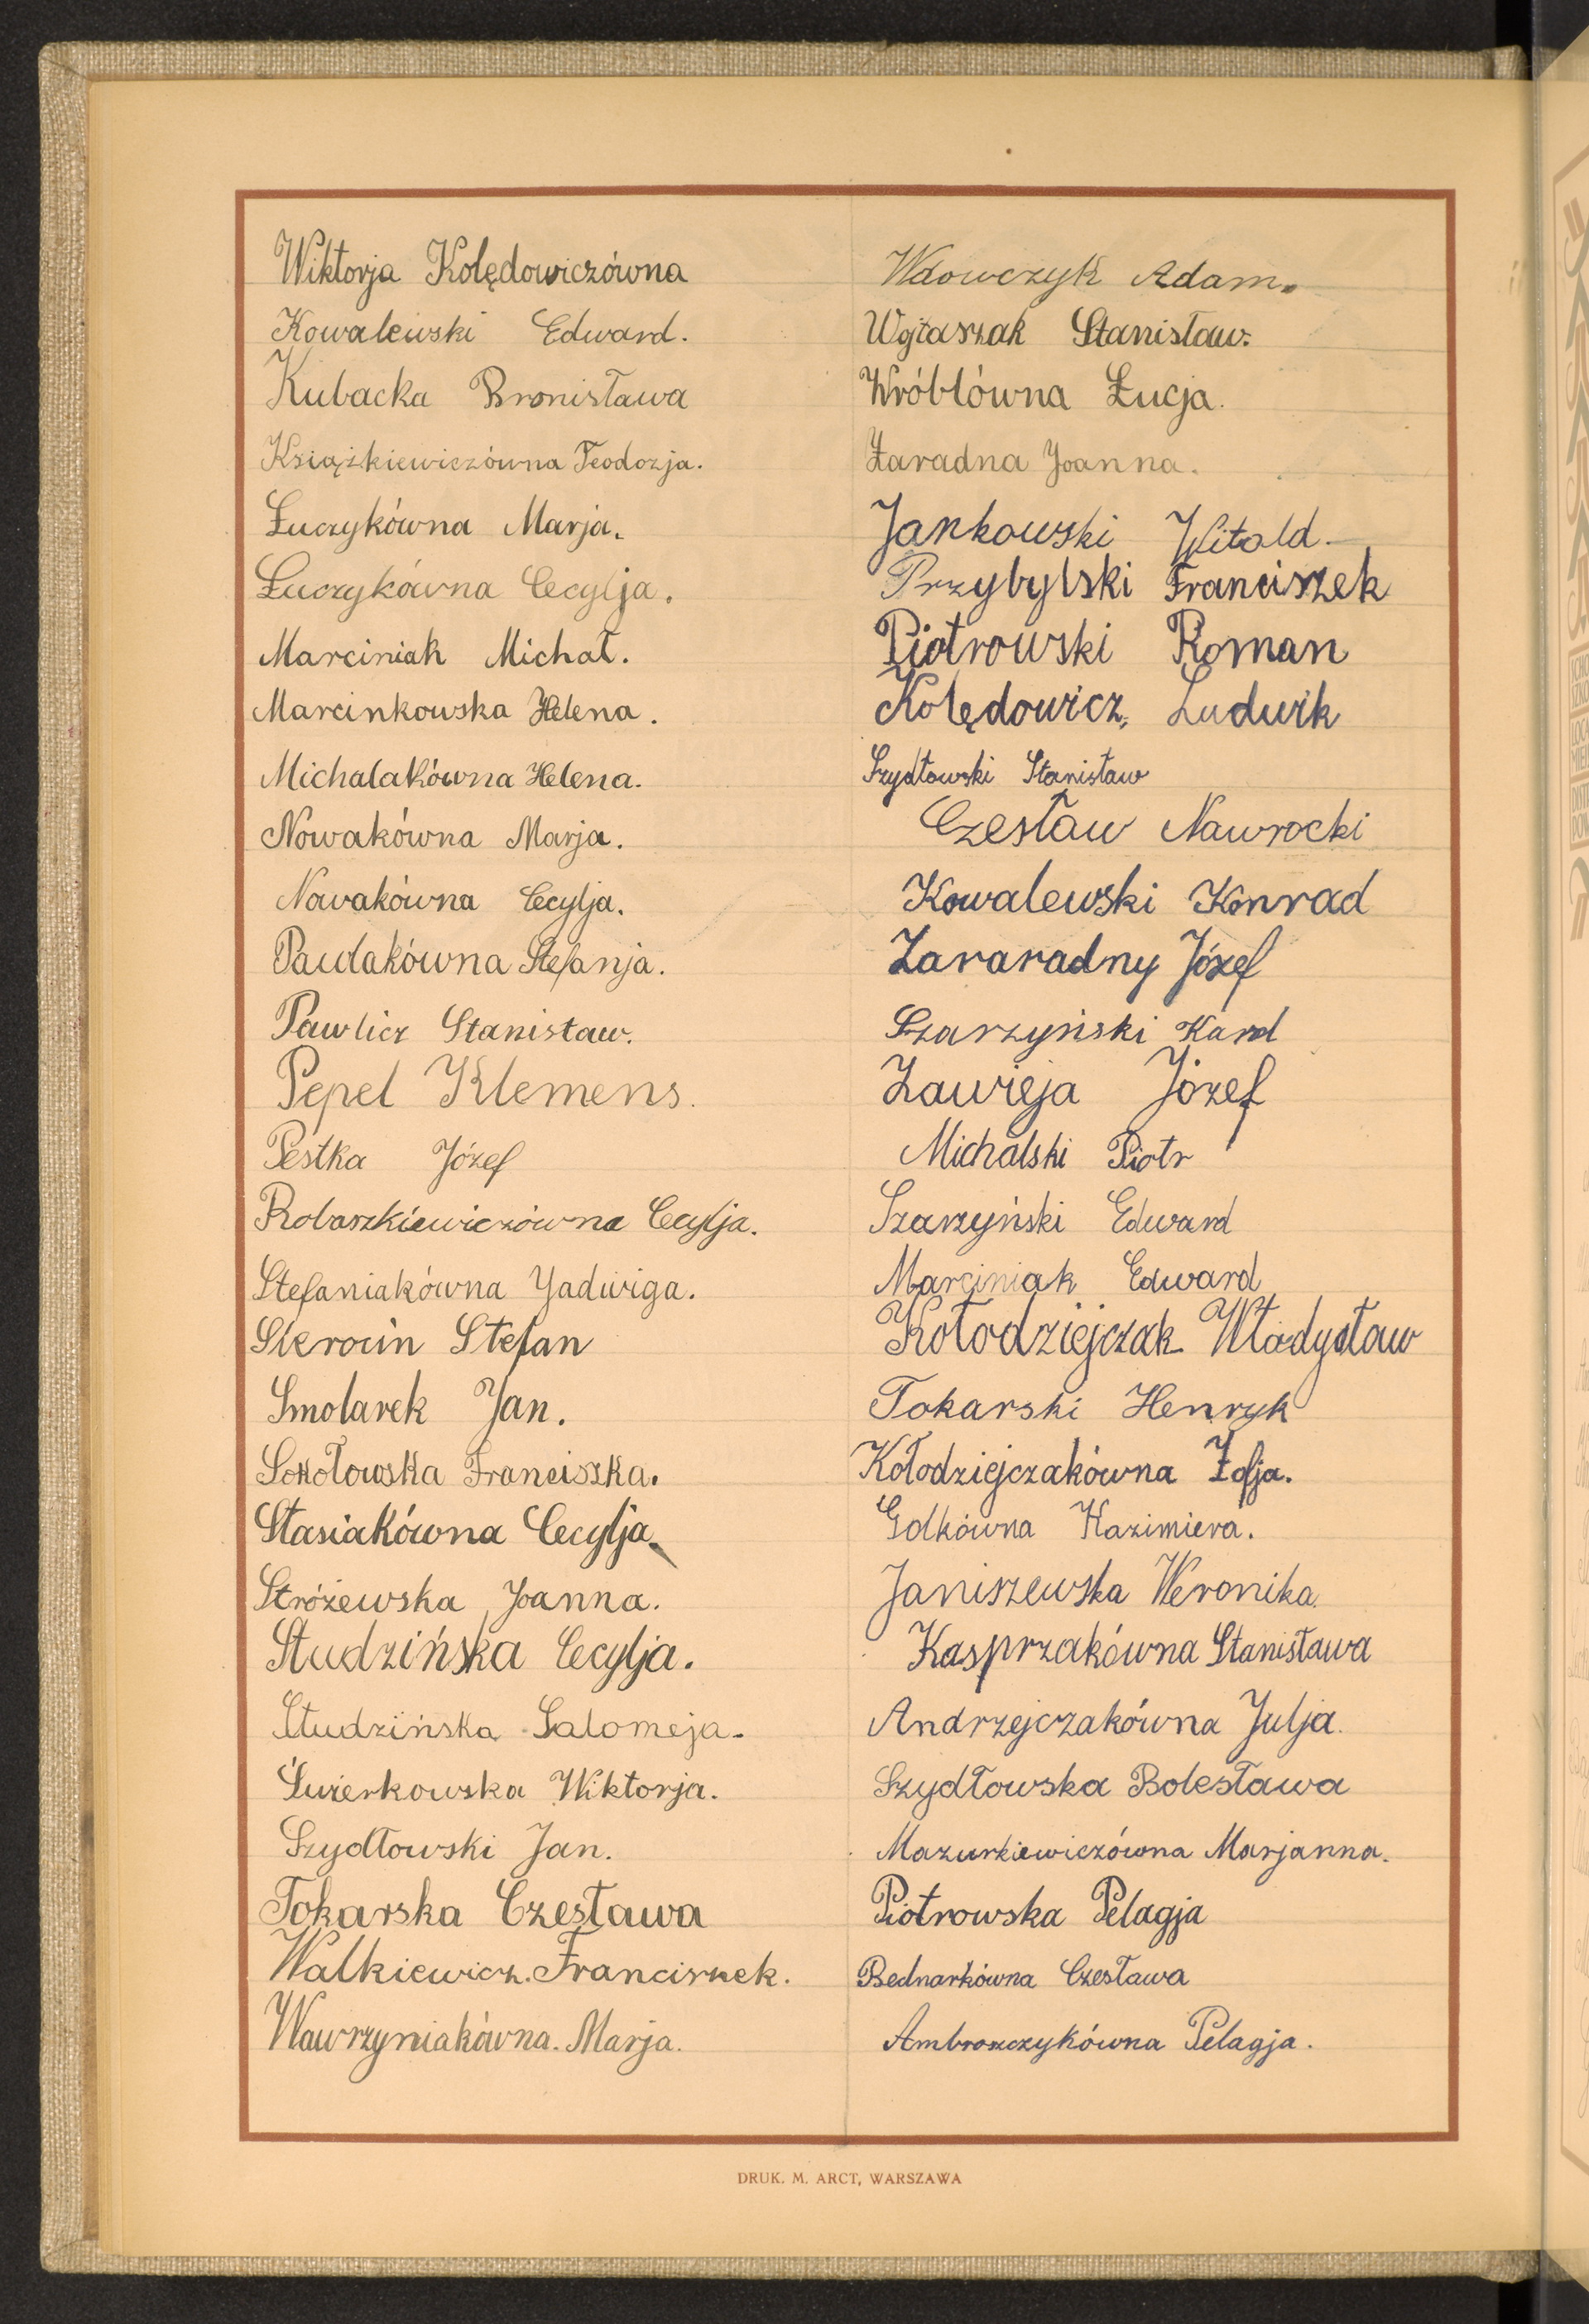 Wiktorja Kolędowiczówna
Kowalewski Edward.
Kubacka Bronisława
Książkiewiczówna Teodozja.
Łuczykówna Marja.
Łuczykówna Cecylja.
Marciniak Michał.
Marcinkowska Helena.
Michalakówna Helena.
Nowakówna Marja.
Nowakówna Cecylja.
Pawlakówna Stefanja.
Pawlicz Stanisław.
Pepel Klemens.
Pestka Józef
Robaszkiewiczówna Cecylja.
Stefaniakówna Jadwiga.
Stefan
Smolarek Jan.
Sokołowska Franciszka.
Stasiakówna Cecylja.
Stróżewska Joanna.
Studzińska Cecylja.
Studzińska Salomeja.
Świerkowska Wiktorja.
Szydłowski Jan.
Tokarska Czesława
Walkiewicz. Franciszek.
Wawrzyniakówna. Marja.
Wdowczyk Adam.
Wojtaszak Stanisław.
Wróblówna Łucja.
Zaradna Joanna.
Jankowski Witold.
Przybylski Franciszek
Piotrowski Roman
Kolędowicz, Ludwik
Szydłowski Stanisław
Czesław Nawrocki
Kowalewski Konrad
Zararadny Józef
Szarzyński Karol
Zawieja Józef
Michalski Piotr
Szarzyński Edward
Marciniak Edward
Kołodziejczak Władysław
Tokarski Henryk
Kołodziejczakówna Zofja.
Golkówna Kazimiera.
Janiszewska Weronika.
Kasprzakówna Stanisława
Andrzejczakówna Julja.
Szydłowska Bolesława
Mazurkiewiczówna Marjanna.
Piotrowska Pelagja
Bednarkówna Czesława
Ambroszczykówna Pelagja.
DRUK. M. ARCT, WARSZAWA